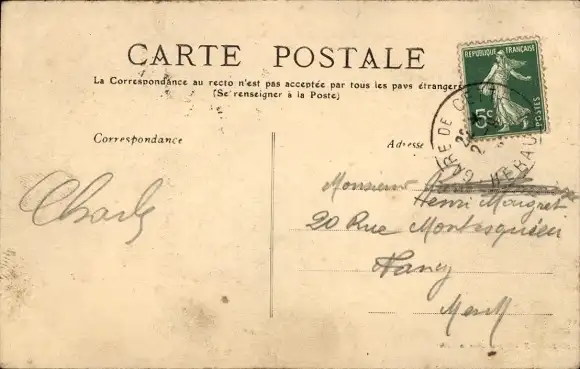 CARTE POSTALE
La Correspondance au recto n'est pas acceptée par tous les pays étrangers
(Se renseigner à la Poste)
REPUBLIQUE FRANÇAISE
POSTES
5c
GARE DE CETTE
HERAULT
Correspondance
Adresse
Charly
Monsieur
Henri Maigret
20 Rue Montesquieu
Nancy